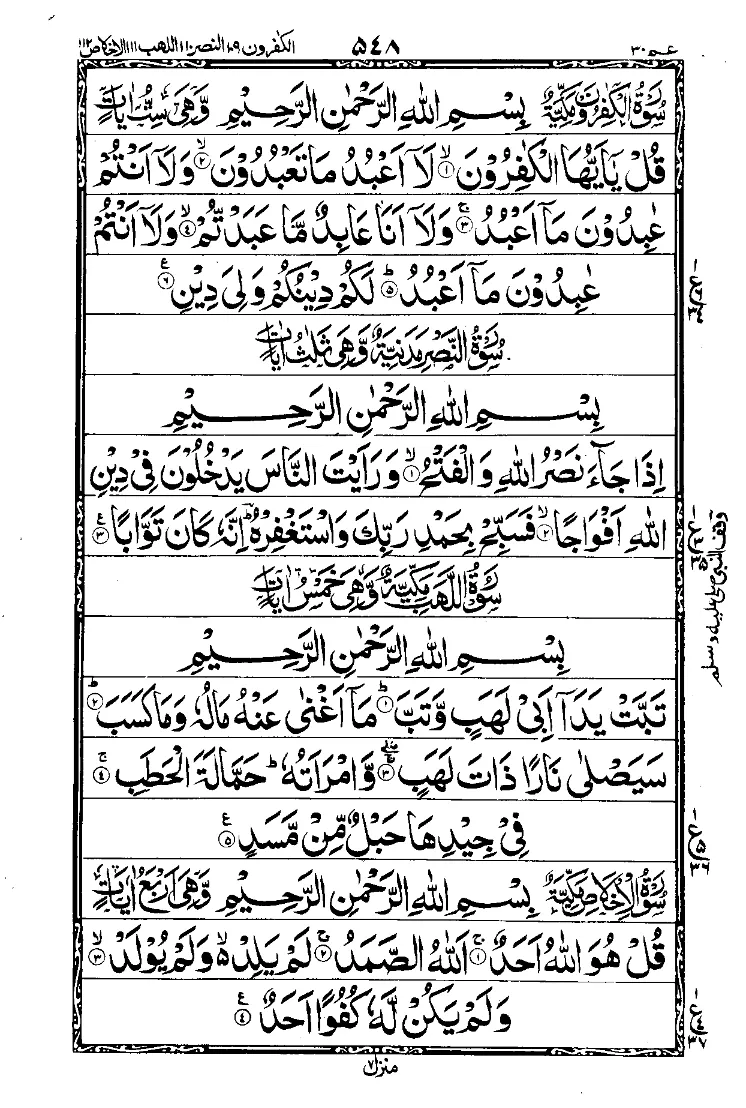 عم ٣٠ ٥٤٨ الكٰفرون ١٠٩ النصر ١١٠ اللهب ١١١ الاخلاص ١١٢
سُوْرَةُ الْكٰفِرُوْنَ مَكِّيَّةٌ بِسْمِ اللهِ الرَّحْمٰنِ الرَّحِيْمِ وَّهِىَ سِتُّ اٰيَاتٍ
قُلْ يٰۤاَيُّهَا الْكٰفِرُوْنَ ۙ﴿١﴾ لَاۤ اَعْبُدُ مَا تَعْبُدُوْنَ ۙ﴿٢﴾ وَلَاۤ اَنْتُمْ
عٰبِدُوْنَ مَاۤ اَعْبُدُ ۚ﴿٣﴾ وَلَاۤ اَنَا عَابِدٌ مَّا عَبَدْتُّمْ ۙ﴿٤﴾ وَلَاۤ اَنْتُمْ
عٰبِدُوْنَ مَاۤ اَعْبُدُ ؕ﴿٥﴾ لَكُمْ دِيْنُكُمْ وَلِىَ دِيْنِ ﴿٦﴾ ع
سُوْرَةُ النَّصْرِ مَدَنِيَّةٌ وَّهِىَ ثَلٰثُ اٰيَاتٍ
بِسْمِ اللهِ الرَّحْمٰنِ الرَّحِيْمِ
اِذَا جَآءَ نَصْرُ اللهِ وَالْفَتْحُ ۙ﴿١﴾ وَرَاَيْتَ النَّاسَ يَدْخُلُوْنَ فِىْ دِيْنِ
اللهِ اَفْوَاجًا ۙ﴿٢﴾ فَسَبِّحْ بِحَمْدِ رَبِّكَ وَاسْتَغْفِرْهُ ؕ اِنَّهٗ كَانَ تَوَّابًا ﴿٣﴾ ع
سُوْرَةُ اللَّهَبِ مَكِّيَّةٌ وَّهِىَ خَمْسُ اٰيَاتٍ
بِسْمِ اللهِ الرَّحْمٰنِ الرَّحِيْمِ
تَبَّتْ يَدَاۤ اَبِىْ لَهَبٍ وَّتَبَّ ؕ﴿١﴾ مَاۤ اَغْنٰى عَنْهُ مَالُهٗ وَمَا كَسَبَ ؕ﴿٢﴾
سَيَصْلٰى نَارًا ذَاتَ لَهَبٍ ﴿٣﴾ وَّامْرَاَتُهٗ ؕ حَمَّالَةَ الْحَطَبِ ۚ﴿٤﴾
فِىْ جِيْدِهَا حَبْلٌ مِّنْ مَّسَدٍ ﴿٥﴾ ع
سُوْرَةُ الْاِخْلَاصِ مَكِّيَّةٌ بِسْمِ اللهِ الرَّحْمٰنِ الرَّحِيْمِ وَّهِىَ اَرْبَعُ اٰيَاتٍ
قُلْ هُوَ اللهُ اَحَدٌ ۚ﴿١﴾ اَللهُ الصَّمَدُ ۚ﴿٢﴾ لَمْ يَلِدْ ۙ وَلَمْ يُوْلَدْ ۙ﴿٣﴾
وَلَمْ يَكُنْ لَّهٗ كُفُوًا اَحَدٌ ﴿٤﴾ ع
منزل ٧
وقف النبى صلى عليه وسلم